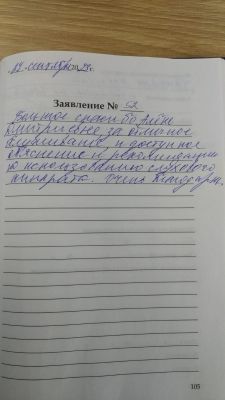 Заявление № 52
Большое спасибо Алле
Дмитриевне, за отличное
обслуживание, и доступное
объяснение и рекомендации
по использованию слухового
аппарата. Очень благодарен.
105